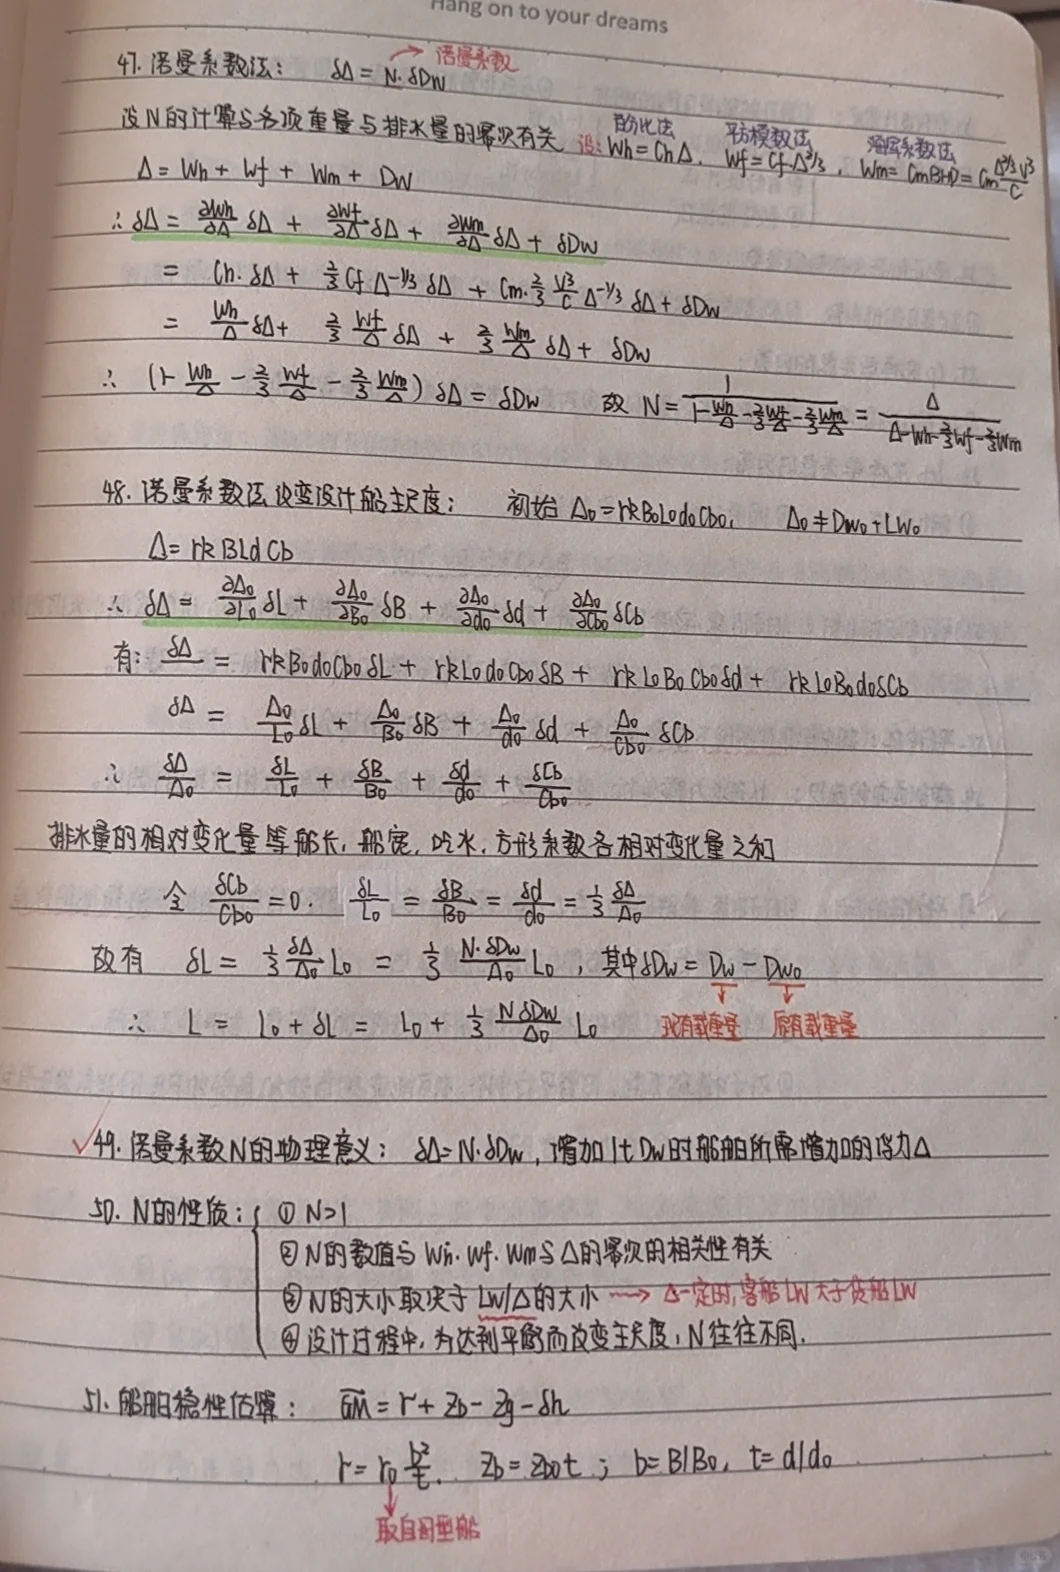 Hang on to your dreams
47. 诺曼系数法: δΔ = N·δDw → 诺曼系数
设N的计算与各项重量与排水量的幂次有关. 设: Wh = ChΔ, Wf = Cf·Δ^2/3, Wm = CmBHD = Cm Δ^2/3 V^3/C
百分比法 平方模数法 海军系数法
Δ = Wh + Wf + Wm + DW
∴ δΔ = ∂Wh/∂Δ δΔ + ∂Wf/∂Δ δΔ + ∂Wm/∂Δ δΔ + δDw
= Ch·δΔ + 2/3 Cf Δ^-1/3 δΔ + Cm·2/3 V^3/C Δ^-1/3 δΔ + δDw
= Wh/Δ δΔ + 2/3 Wf/Δ δΔ + 2/3 Wm/Δ δΔ + δDw
∴ (1 - Wh/Δ - 2/3 Wf/Δ - 2/3 Wm/Δ) δΔ = δDw 故 N = 1/(1 - Wh/Δ - 2/3 Wf/Δ - 2/3 Wm/Δ) = Δ/(Δ - Wh - 2/3 Wf - 2/3 Wm)
48. 诺曼系数法改变设计船主尺度: 初始 Δ0 = rkB0L0d0Cb0, Δ0 ≠ Dw0 + LW0
Δ = rkBLdCb
∴ δΔ = ∂Δ0/∂L0 δL + ∂Δ0/∂B0 δB + ∂Δ0/∂d0 δd + ∂Δ0/∂Cb0 δCb
有: δΔ = rkB0d0Cb0δL + rkL0d0Cb0δB + rkL0B0Cb0δd + rkL0B0d0δCb
δΔ = Δ0/L0 δL + Δ0/B0 δB + Δ0/d0 δd + Δ0/Cb0 δCb
∴ δΔ/Δ0 = δL/L0 + δB/B0 + δd/d0 + δCb/Cb0
排水量的相对变化量等船长, 船宽, 吃水, 方形系数各相对变化量之和
令 δCb/Cb0 = 0. δL/L0 = δB/B0 = δd/d0 = 1/3 δΔ/Δ0
故有 δL = 1/3 δΔ/Δ0 L0 = 1/3 N·δDw/Δ0 L0, 其中δDw = Dw - Dw0
∴ L = L0 + δL = L0 + 1/3 NδDw/Δ0 L0 现有载重量 原有载重量
√49. 诺曼系数N的物理意义: δΔ=N·δDw, 增加1t Dw时船舶所需增加的浮力Δ
50. N的性质: ① N>1
② N的数值与Wh·Wf·Wm与Δ的幂次的相关性有关
③ N的大小取决于LW/Δ的大小 → Δ一定时, 客船LW大于货船LW
④ 设计过程中, 为达到平衡而改变主尺度, N往往不同.
51. 船舶稳性估算: GM = r + Zb - Zg - δh
r = r0 b²/t. Zb = Zb0t ; b = B/B0, t = d/d0
取自母型船